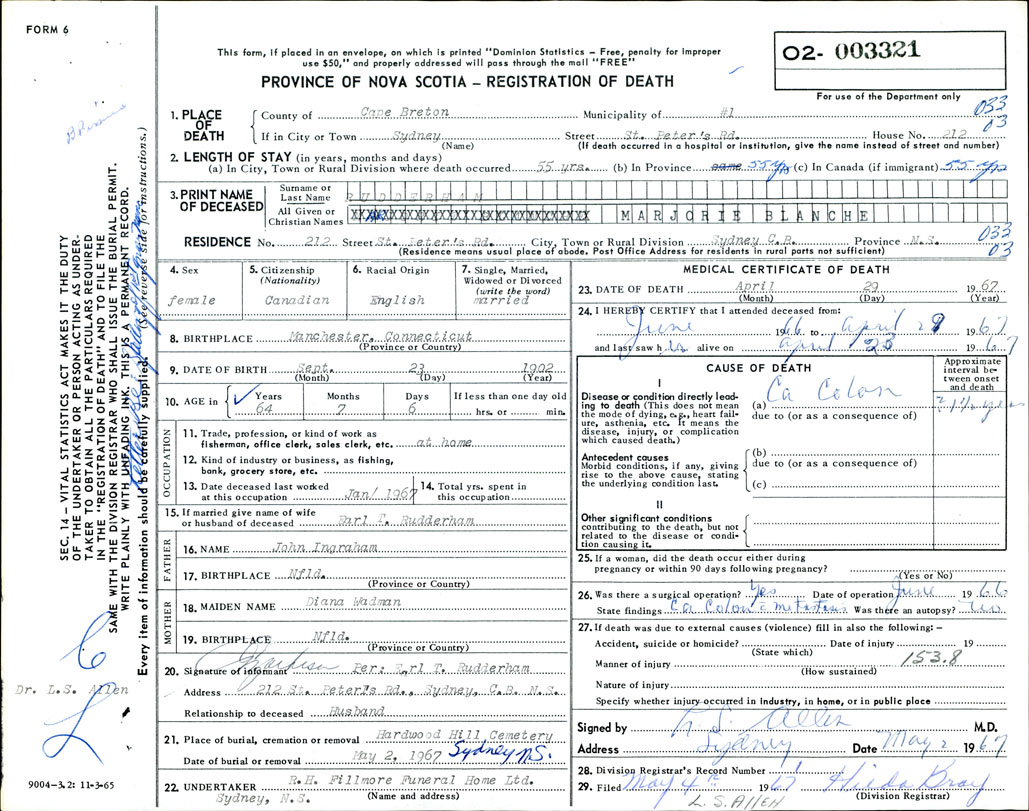 FORM 6
This form, if placed in an envelope, on which is printed "Dominion Statistics – Free, penalty for improper
use $50," and properly addressed will pass through the mail "FREE"
PROVINCE OF NOVA SCOTIA – REGISTRATION OF DEATH
02- 003321
For use of the Department only
1. PLACE OF DEATH
County of Cape Breton Municipality of #1 033
If in City or Town Sydney Street St. Peter's Rd. House No. 212 03
(Name) (If death occurred in a hospital or institution, give the name instead of street and number)
2. LENGTH OF STAY (in years, months and days)
(a) In City, Town or Rural Division where death occurred 55 yrs. (b) In Province same 55 yrs (c) In Canada (if immigrant) 55 yrs
3. PRINT NAME OF DECEASED
Surname or Last Name RUDDERHAM
All Given or Christian Names MARJORIE BLANCHE
RESIDENCE No. 212 Street St. Peter's Rd. City, Town or Rural Division Sydney C.B. Province N.S. 033
(Residence means usual place of abode. Post Office Address for residents in rural parts not sufficient) 03
4. Sex female
5. Citizenship (Nationality) Canadian
6. Racial Origin English
7. Single, Married, Widowed or Divorced (write the word) married
8. BIRTHPLACE Manchester, Connecticut
(Province or Country)
9. DATE OF BIRTH Sept. 23 1902
(Month) (Day) (Year)
10. AGE in Years 64 Months 7 Days 6 If less than one day old hrs. or min.
OCCUPATION
11. Trade, profession, or kind of work as
fisherman, office clerk, sales clerk, etc. at home
12. Kind of industry or business, as fishing,
bank, grocery store, etc.
13. Date deceased last worked
at this occupation Jan/ 1967
14. Total yrs. spent in
this occupation
15. If married give name of wife
or husband of deceased Earl T. Rudderham
FATHER
16. NAME John Ingraham
17. BIRTHPLACE Nfld.
(Province or Country)
MOTHER
18. MAIDEN NAME Diana Wadman
19. BIRTHPLACE Nfld.
(Province or Country)
20. Signature of informant Per: Earl T. Rudderham
Address 212 St. Peter's Rd., Sydney, C.B. N.S.
Relationship to deceased Husband
21. Place of burial, cremation or removal Hardwood Hill Cemetery
Date of burial or removal May 2, 1967 Sydney N.S.
22. UNDERTAKER R.H. Fillmore Funeral Home Ltd.
Sydney, N.S. (Name and address)
MEDICAL CERTIFICATE OF DEATH
23. DATE OF DEATH April 29 1967
(Month) (Day) (Year)
24. I HEREBY CERTIFY that I attended deceased from:
June 1966 to April 29, 1967
and last saw her alive on April 28 1967
CAUSE OF DEATH
Approximate interval between onset and death
I
Disease or condition directly lead-
ing to death (This does not mean
the mode of dying, e.g., heart fail-
ure, asthenia, etc. It means the
disease, injury, or complication
which caused death.)
(a) Ca Colon
due to (or as a consequence of)
Antecedent causes
Morbid conditions, if any, giving
rise to the above cause, stating
the underlying condition last.
(b)
due to (or as a consequence of)
(c)
II
Other significant conditions
contributing to the death, but not
related to the disease or condi-
tion causing it.
25. If a woman, did the death occur either during
pregnancy or within 90 days following pregnancy?
(Yes or No)
26. Was there a surgical operation? Yes Date of operation June 1966
State findings Ca Colon Was there an autopsy?
27. If death was due to external causes (violence) fill in also the following: –
Accident, suicide or homicide? Date of injury 19
(State which)
Manner of injury 153.8
(How sustained)
Nature of injury
Specify whether injury occurred in industry, in home, or in public place
Signed by L. S. Allen M.D.
Address Sydney Date May 2 1967
28. Division Registrar's Record Number
29. Filed May 4th 1967 Hilda Bray
L.S. ALLEN (Division Registrar)
SEC. 14 – VITAL STATISTICS ACT MAKES IT THE DUTY
OF THE UNDERTAKER OR PERSON ACTING AS UNDER-
TAKER TO OBTAIN ALL THE PARTICULARS REQUIRED
IN THE "REGISTRATION OF DEATH" AND TO FILE THE
SAME WITH THE DIVISION REGISTRAR WHO SHALL ISSUE THE BURIAL PERMIT.
WRITE PLAINLY WITH UNFADING INK. THIS IS A PERMANENT RECORD.
Every item of information should be carefully supplied. (See reverse side for instructions.)
Dr. L.S. Allen
9004-3.2: 11-3-65